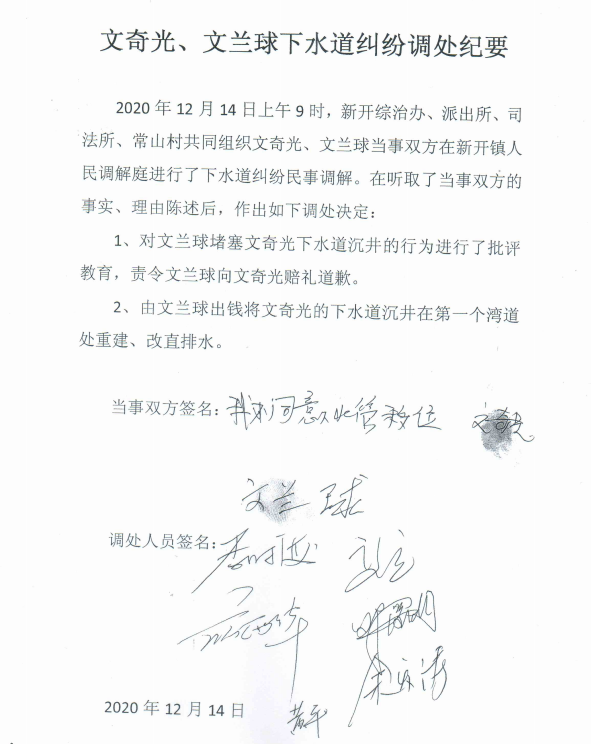 文奇光、文兰球下水道纠纷调处纪要
2020 年 12 月 14 日上午 9 时，新开综治办、派出所、司
法所、常山村共同组织文奇光、文兰球当事双方在新开镇人
民调解庭进行了下水道纠纷民事调解。在听取了当事双方的
事实、理由陈述后，作出如下调处决定：
1、对文兰球堵塞文奇光下水道沉井的行为进行了批评
教育，责令文兰球向文奇光赔礼道歉。
2、由文兰球出钱将文奇光的下水道沉井在第一个湾道
处重建、改直排水。
当事双方签名：我不同意水管移位 文奇光
文兰球
调处人员签名：
黄平
2020 年 12 月 14 日